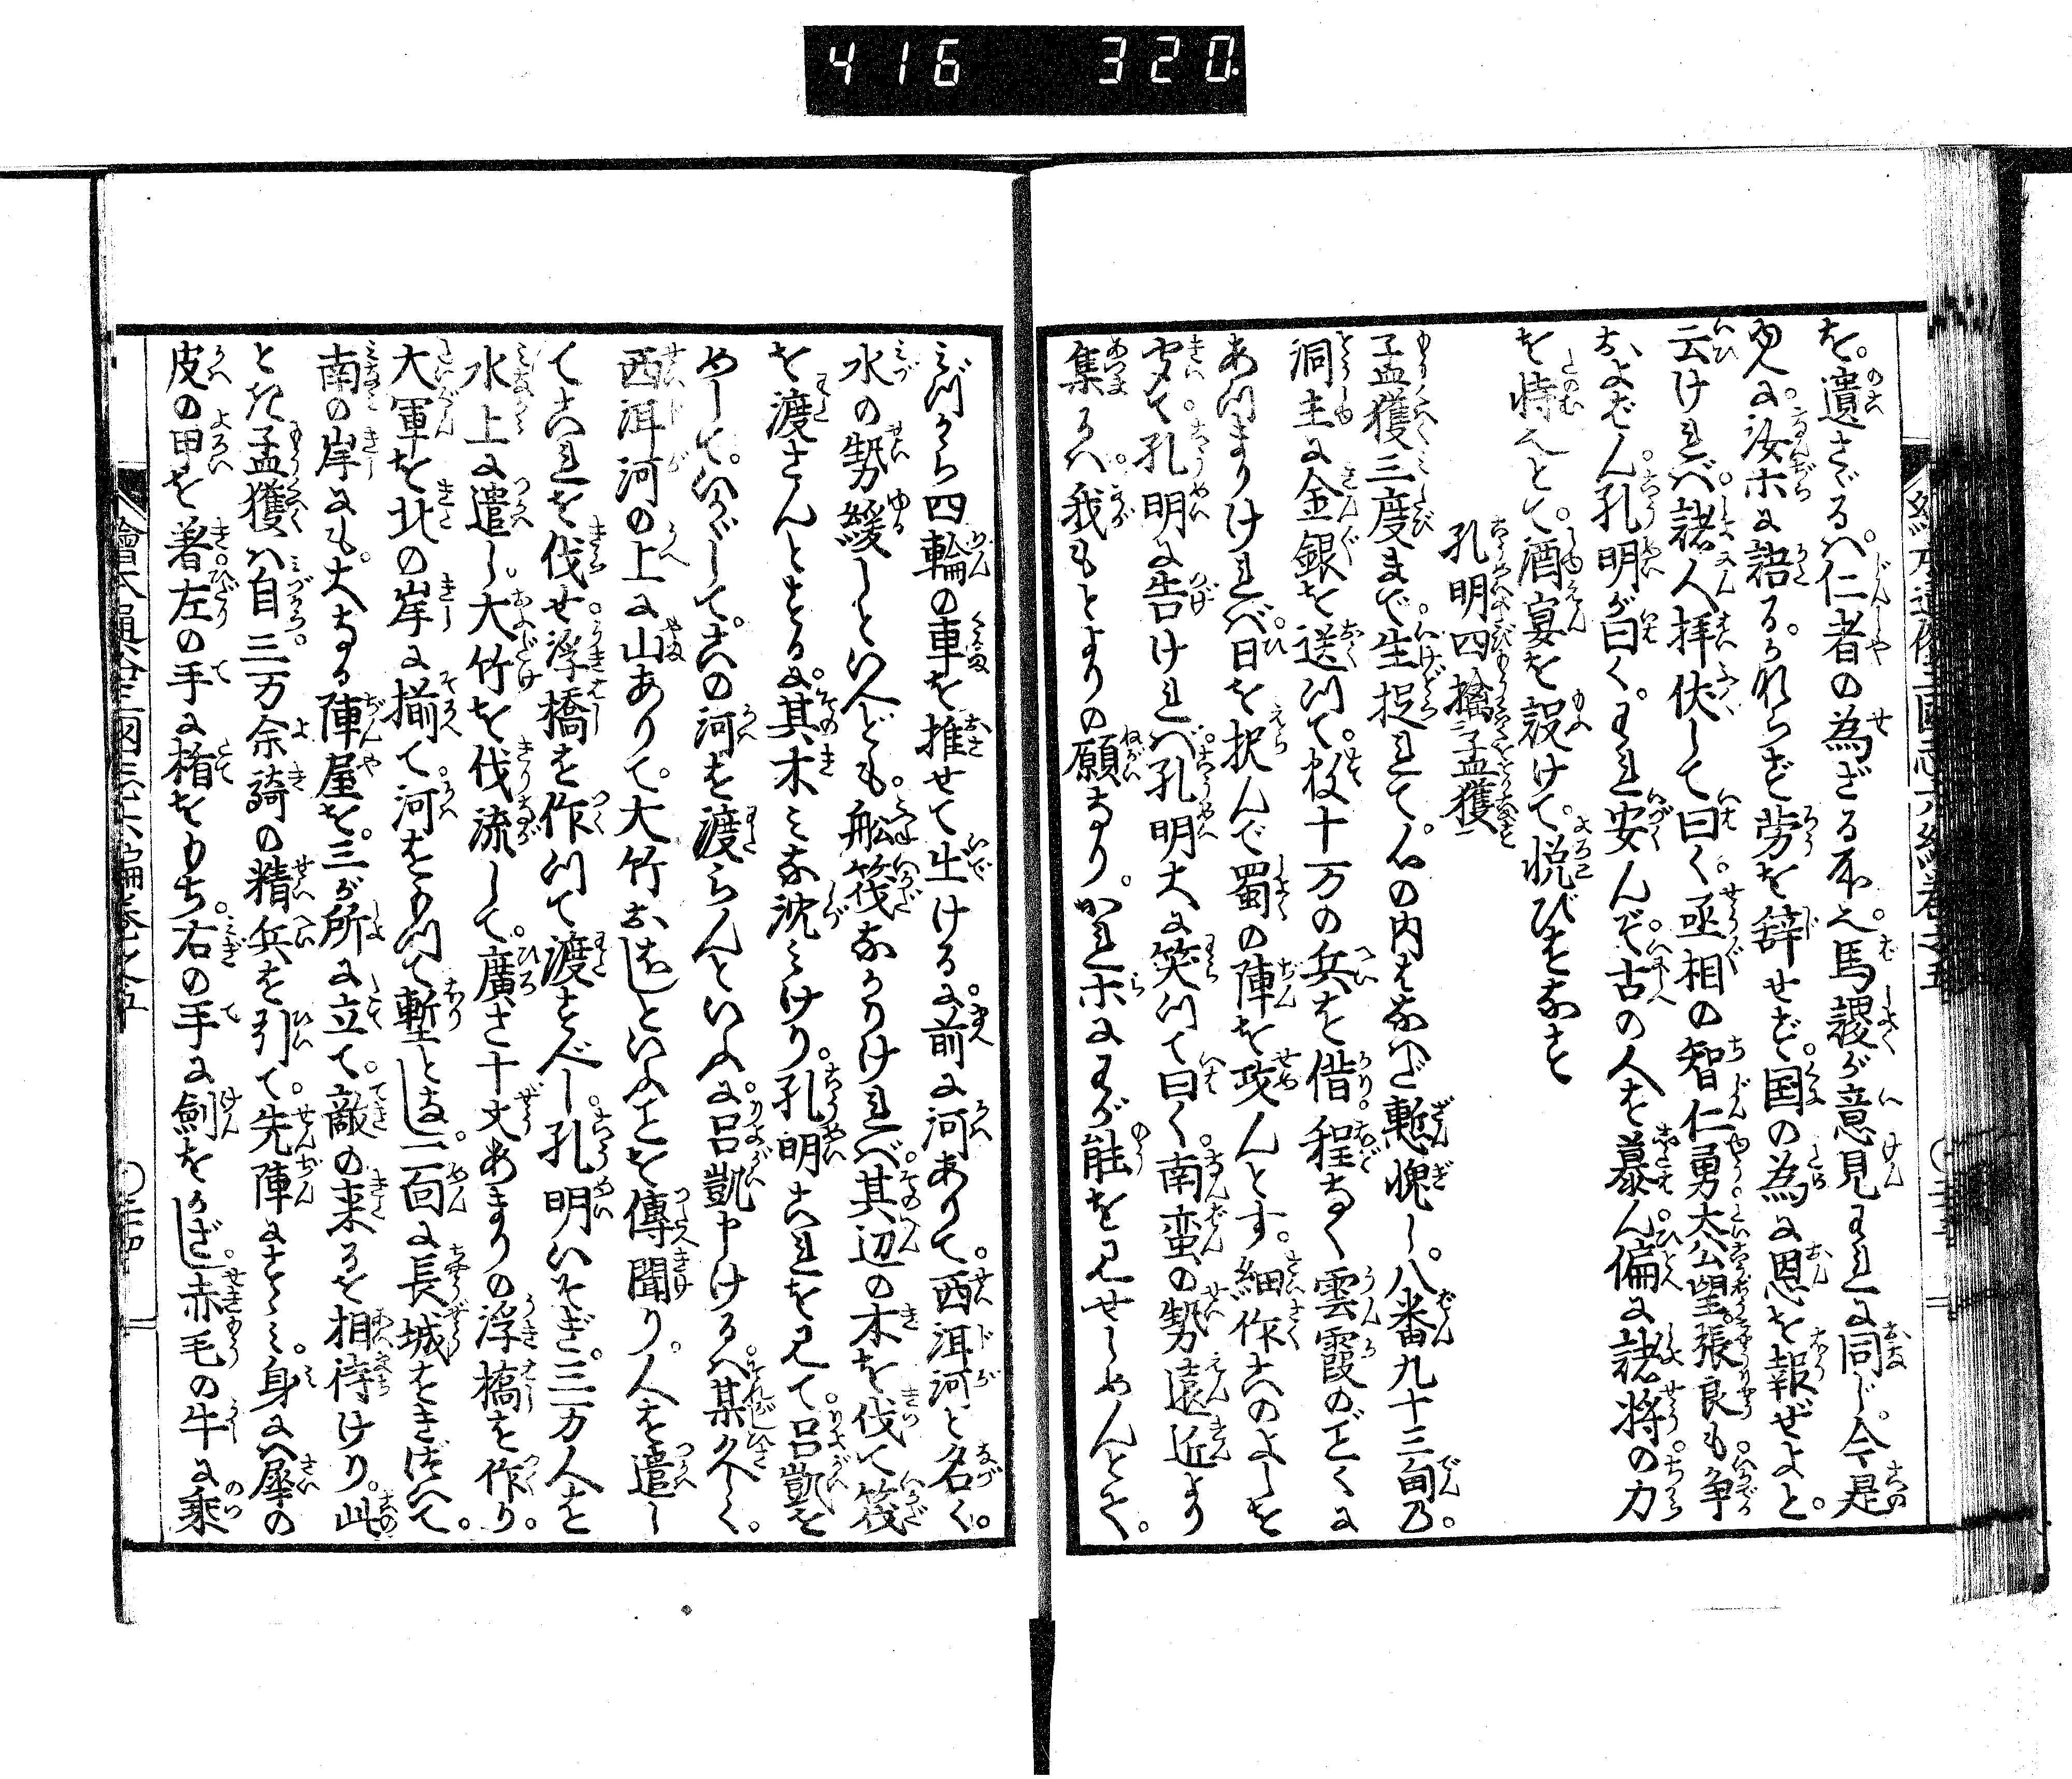 416 320
を。遺さゞるハ。仁者の為ざる所也。馬謖が意見われに同じ。今是
故に。汝ホに語る。かならず労を辞せず。国の為に恩を報ぜよと。
云けれバ。諸人拝伏して曰く。丞相の智仁勇。太公望。張良も。争
およばん。孔明が曰く。われ安んぞ。古の人を慕ん。偏に諸将の力
を恃んとて。酒宴を設けて。悦びをなす
孔明四擒孟獲
孟獲三度まで。生捉れて。心の内はなはだ慙愧し。八番九十三甸乃。
洞主に金銀を送つて。牌十万の兵を借。程なく雲霞のごとくに
あつまりけれバ。日を択んで蜀の陣を攻んとす。細作このよしを
聞て。孔明に告けれバ。孔明大に笑つて曰く。南蛮の勢遠近より
集るハ。我もとよりの願なり。かれホにわが能を見せしめんとて。
みづから四輪の車を推せて出ける。に前に河ありて。西洱河と名く。
水の勢緩しといへども。船筏なかりけれバ。其辺の木を伐て筏
を渡さんとするに。其木みな沈みけり。孔明これを見て。呂凱を
めして。いかゞして。この河を渡らんといふに。呂凱申けるハ。某久しく。
西洱河の上に山ありて。大竹おほしといふことを傳聞り。人を遣し
てこれを伐せ。浮橋を作つて渡すべし。孔明いそぎ。三万人を
水上に遣し。大竹を伐流して。廣さ十丈あまりの浮橋を作り。
大軍を北の岸に揃て。河をもつて塹とほし。一面に長城をきづいて。
南の岸にも。大なる陣屋を。三が所に立て。敵の来るを相待けり。此
とき孟獲ハ自。三万余騎の精兵を引て。先陣にすゝみ。身にハ犀の
皮の甲を着。左の手に楯をもち。右の手に劍をかざし。赤毛の牛に乗
繪本通俗三國志六編巻之五